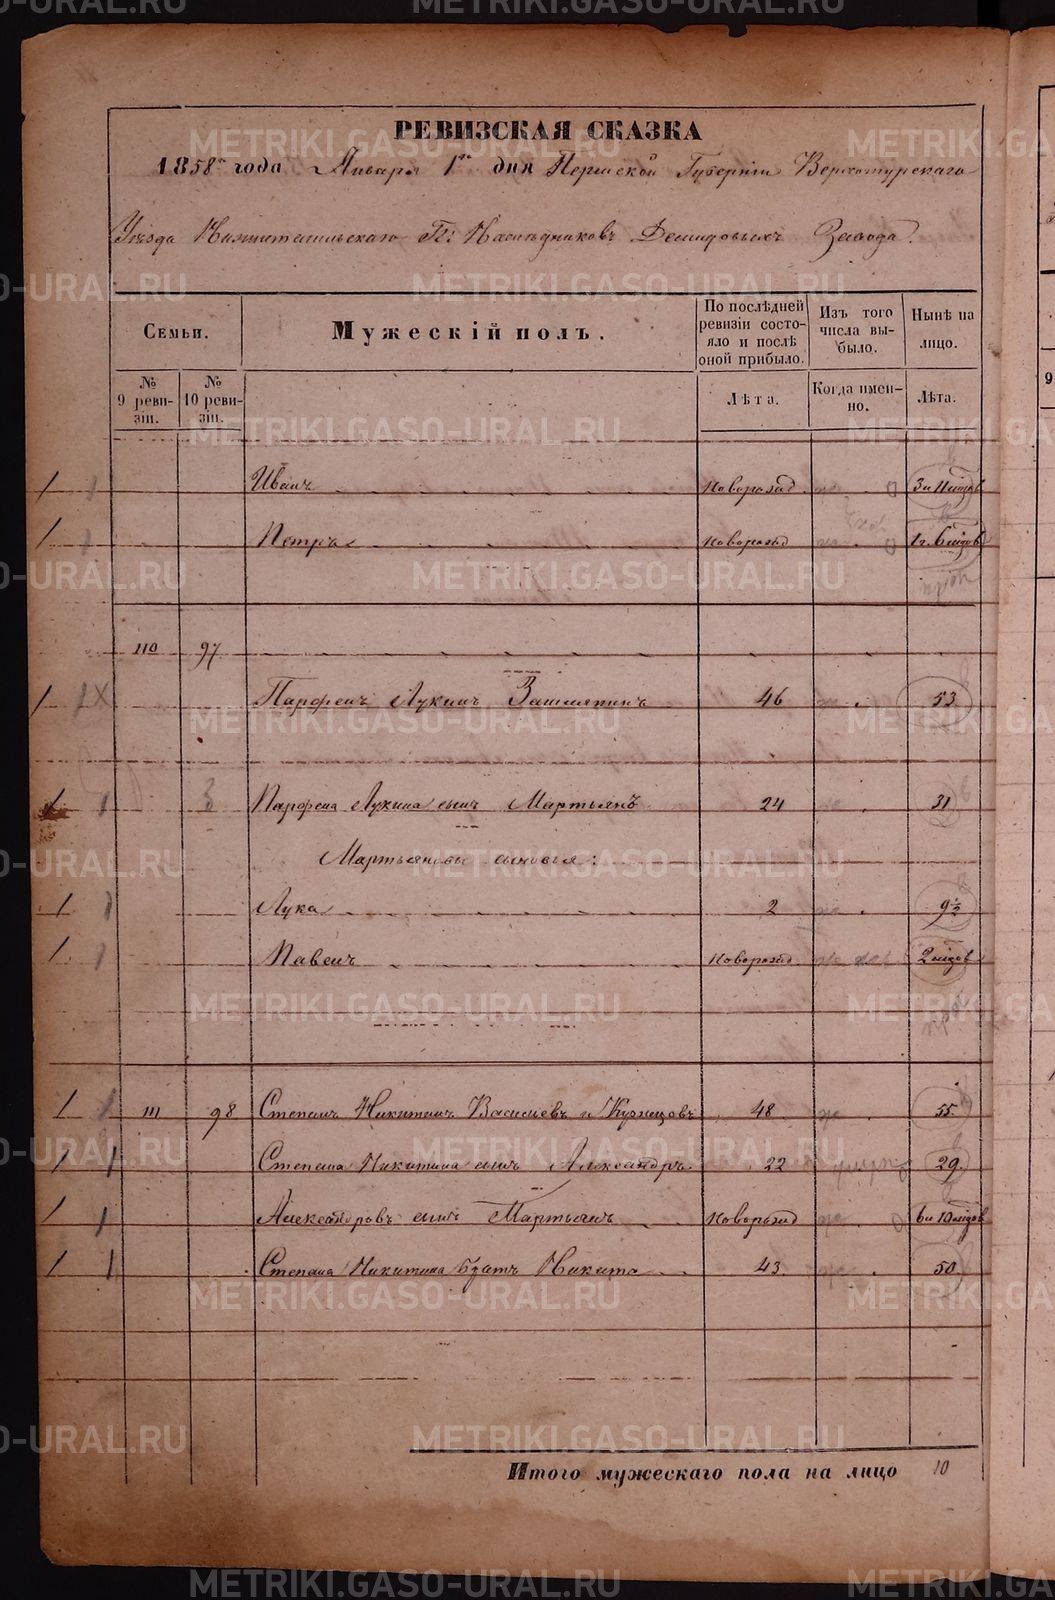 РЕВИЗСКАЯ СКАЗКА
1858го года Января 1го дня Пермской Губерніи Верхотурскаго
Уѣзда Нижнетагильскаго Гг: Наслѣдниковъ Демидовыхъ Завода.
Семьи.
Мужескій полъ.
По послѣдней ревизіи состояло и послѣ оной прибыло.
Изъ того числа выбыло.
Нынѣ на лицо.
№ 9 ревизіи.
№ 10 ревизіи.
Лѣта.
Когда именно.
Лѣта.
Иванъ Новорожд 3 и 11 мѣцов
Петръ Новорожд 1 г. 6 мѣцов
110 97
Парфенъ Лукинъ 46 53
3 Парфена Лукина сынъ Мартьянъ 24 31
Мартьяновы сыновья:
Лука 2 9½
Павелъ Новорожд 2 мѣцов
111 98 Степанъ Никитинъ Васильевъ и Кузнецовъ 48 55
Степана Никитина сынъ Александръ 22 29.
Александровъ сынъ Мартьянъ Новорожд 6 и 10 мѣцов
Степана Никитина братъ Никита 43 50
Итого мужескаго пола на лицо 10
METRIKI.GASO-URAL.RU